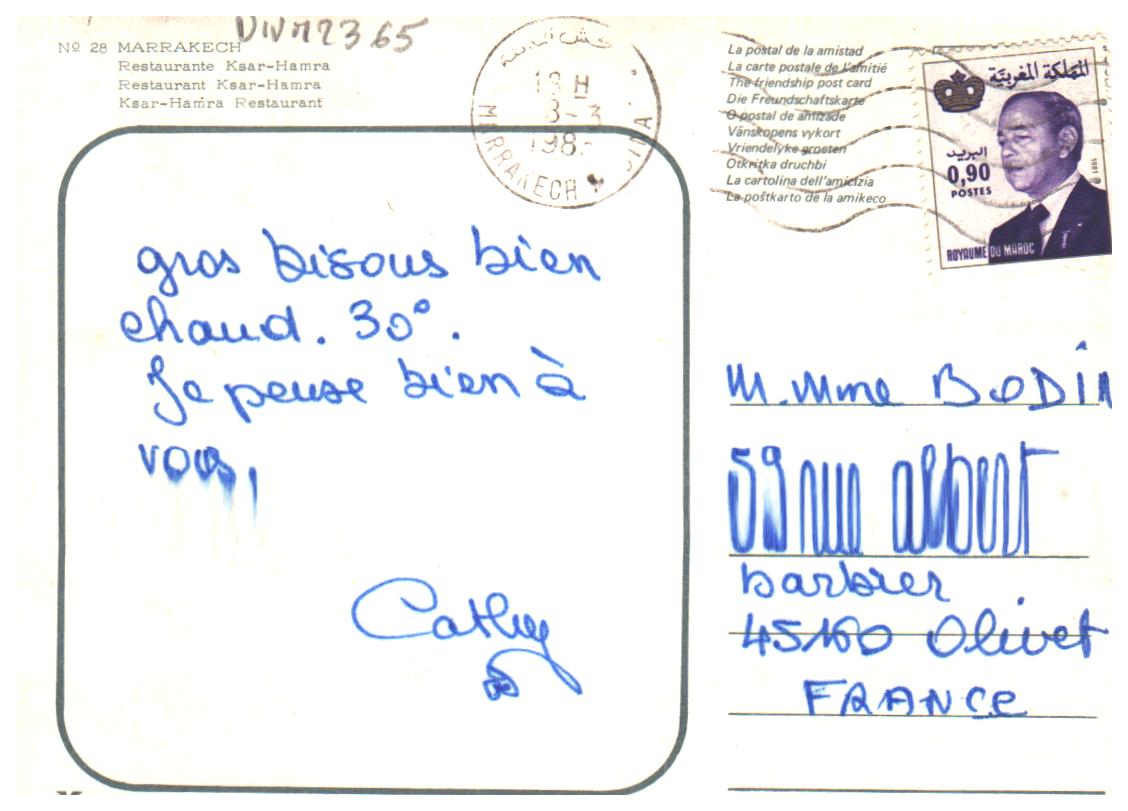 DIVM2365
Nº 28 MARRAKECH
Restaurante Ksar-Hamra
Restaurant Ksar-Hamra
Ksar-Hamra Restaurant
18 H
8-3
MARRAKECH
La postal de la amistad
La carte postale de l'amitié
The friendship post card
Die Freundschaftskarte
O postal de amizade
Vänskopens vykort
Vriendelyke groeten
Otkritka druchbi
La cartolina dell'amicizia
La poŝtkarto de la amikeco
المملكة المغربية
البريد
0,90
POSTES
1981
ROYAUME DU MAROC
gros bisous bien
chaud. 30°.
Je pense bien à
vous,
Cathy
M. Mme BODIN
59 rue albert
barbier
45160 Olivet
FRANCE